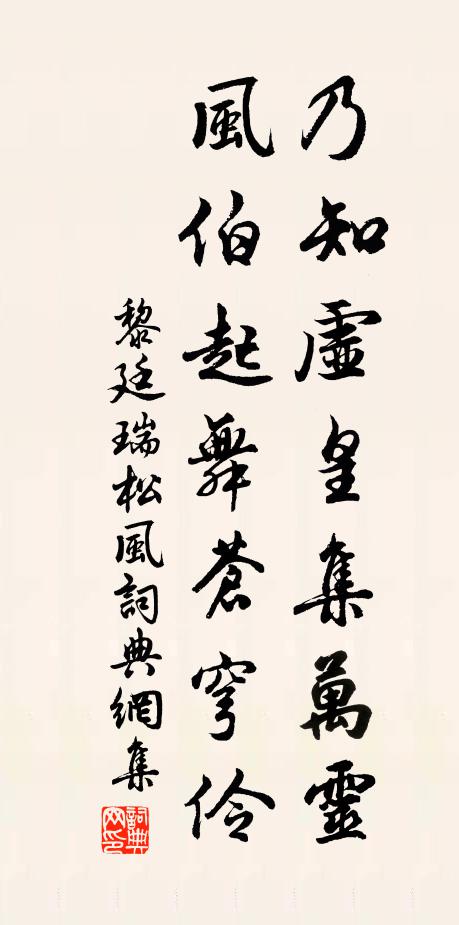 乃知虛皇集萬靈
風伯起舞蒼穹伶
黎廷瑞松風詞典網集
詞典網印